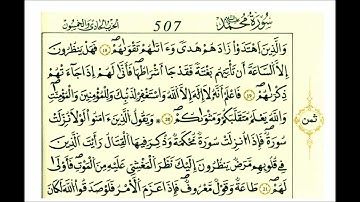 سُورَةُ مُحَمَّدٍ 507 الحزب الحادي والخمسون
وَالَّذِينَ اهْتَدَوْا زَادَهُمْ هُدًى وَءَاتَىٰهُمْ تَقْوَىٰهُمْ فَهَلْ يَنظُرُونَ
إِلَّا السَّاعَةَ أَن تَأْتِيَهُم بَغْتَةً فَقَدْ جَا أَشْرَاطُهَا فَأَنَّىٰ لَهُمْ إِذَا جَاءَتْهُمْ
ذِكْرَىٰهُمْ فَاعْلَمْ أَنَّهُ لَا إِلَٰهَ إِلَّا اللَّهُ وَاسْتَغْفِرْ لِذَنبِكَ وَلِلْمُومِنِينَ وَالْمُومِنَٰتِ
وَاللَّهُ يَعْلَمُ مُتَقَلَّبَكُمْ وَمَثْوَىٰكُمْ وَيَقُولُ الَّذِينَ ءَامَنُوا لَوْلَا نُزِّلَتْ
سُورَةٌ فَإِذَا أُنزِلَتْ سُورَةٌ مُحْكَمَةٌ وَذُكِرَ فِيهَا الْقِتَالُ رَأَيْتَ الَّذِينَ
فِي قُلُوبِهِم مَرَضٌ يَنظُرُونَ إِلَيْكَ نَظَرَ الْمَغْشِيِّ عَلَيْهِ مِنَ الْمَوْتِ فَأَوْلَىٰ
لَهُمْ طَاعَةٌ وَقَوْلٌ مَعْرُوفٌ فَإِذَا عَزَمَ الْأَمْرُ فَلَوْ صَدَقُوا اللَّهَ لَكَانَ
ثمن